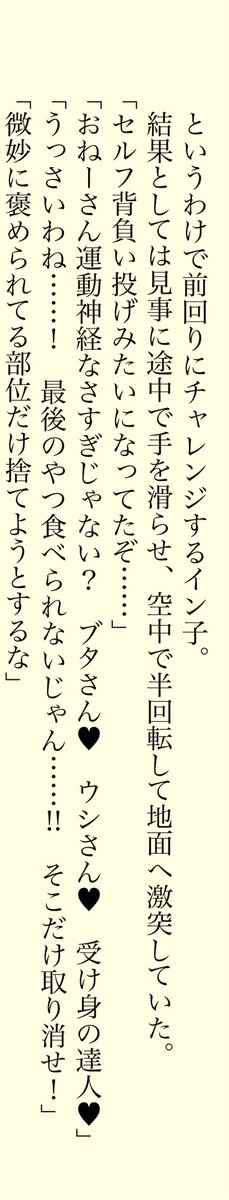 というわけで前回りにチャレンジするイン子。
結果としては見事に途中で手を滑らせ、空中で半回転して地面へ激突していた。
「セルフ背負い投げみたいになってたぞ……」
「おねーさん運動神経なさすぎじゃない？　ブタさん♥　ウシさん♥　受け身の達人♥」
「うっさいわね……！　最後のやつ食べられないじゃん……!!　そこだけ取り消せ！」
「微妙に褒められてる部位だけ捨てようとするな」